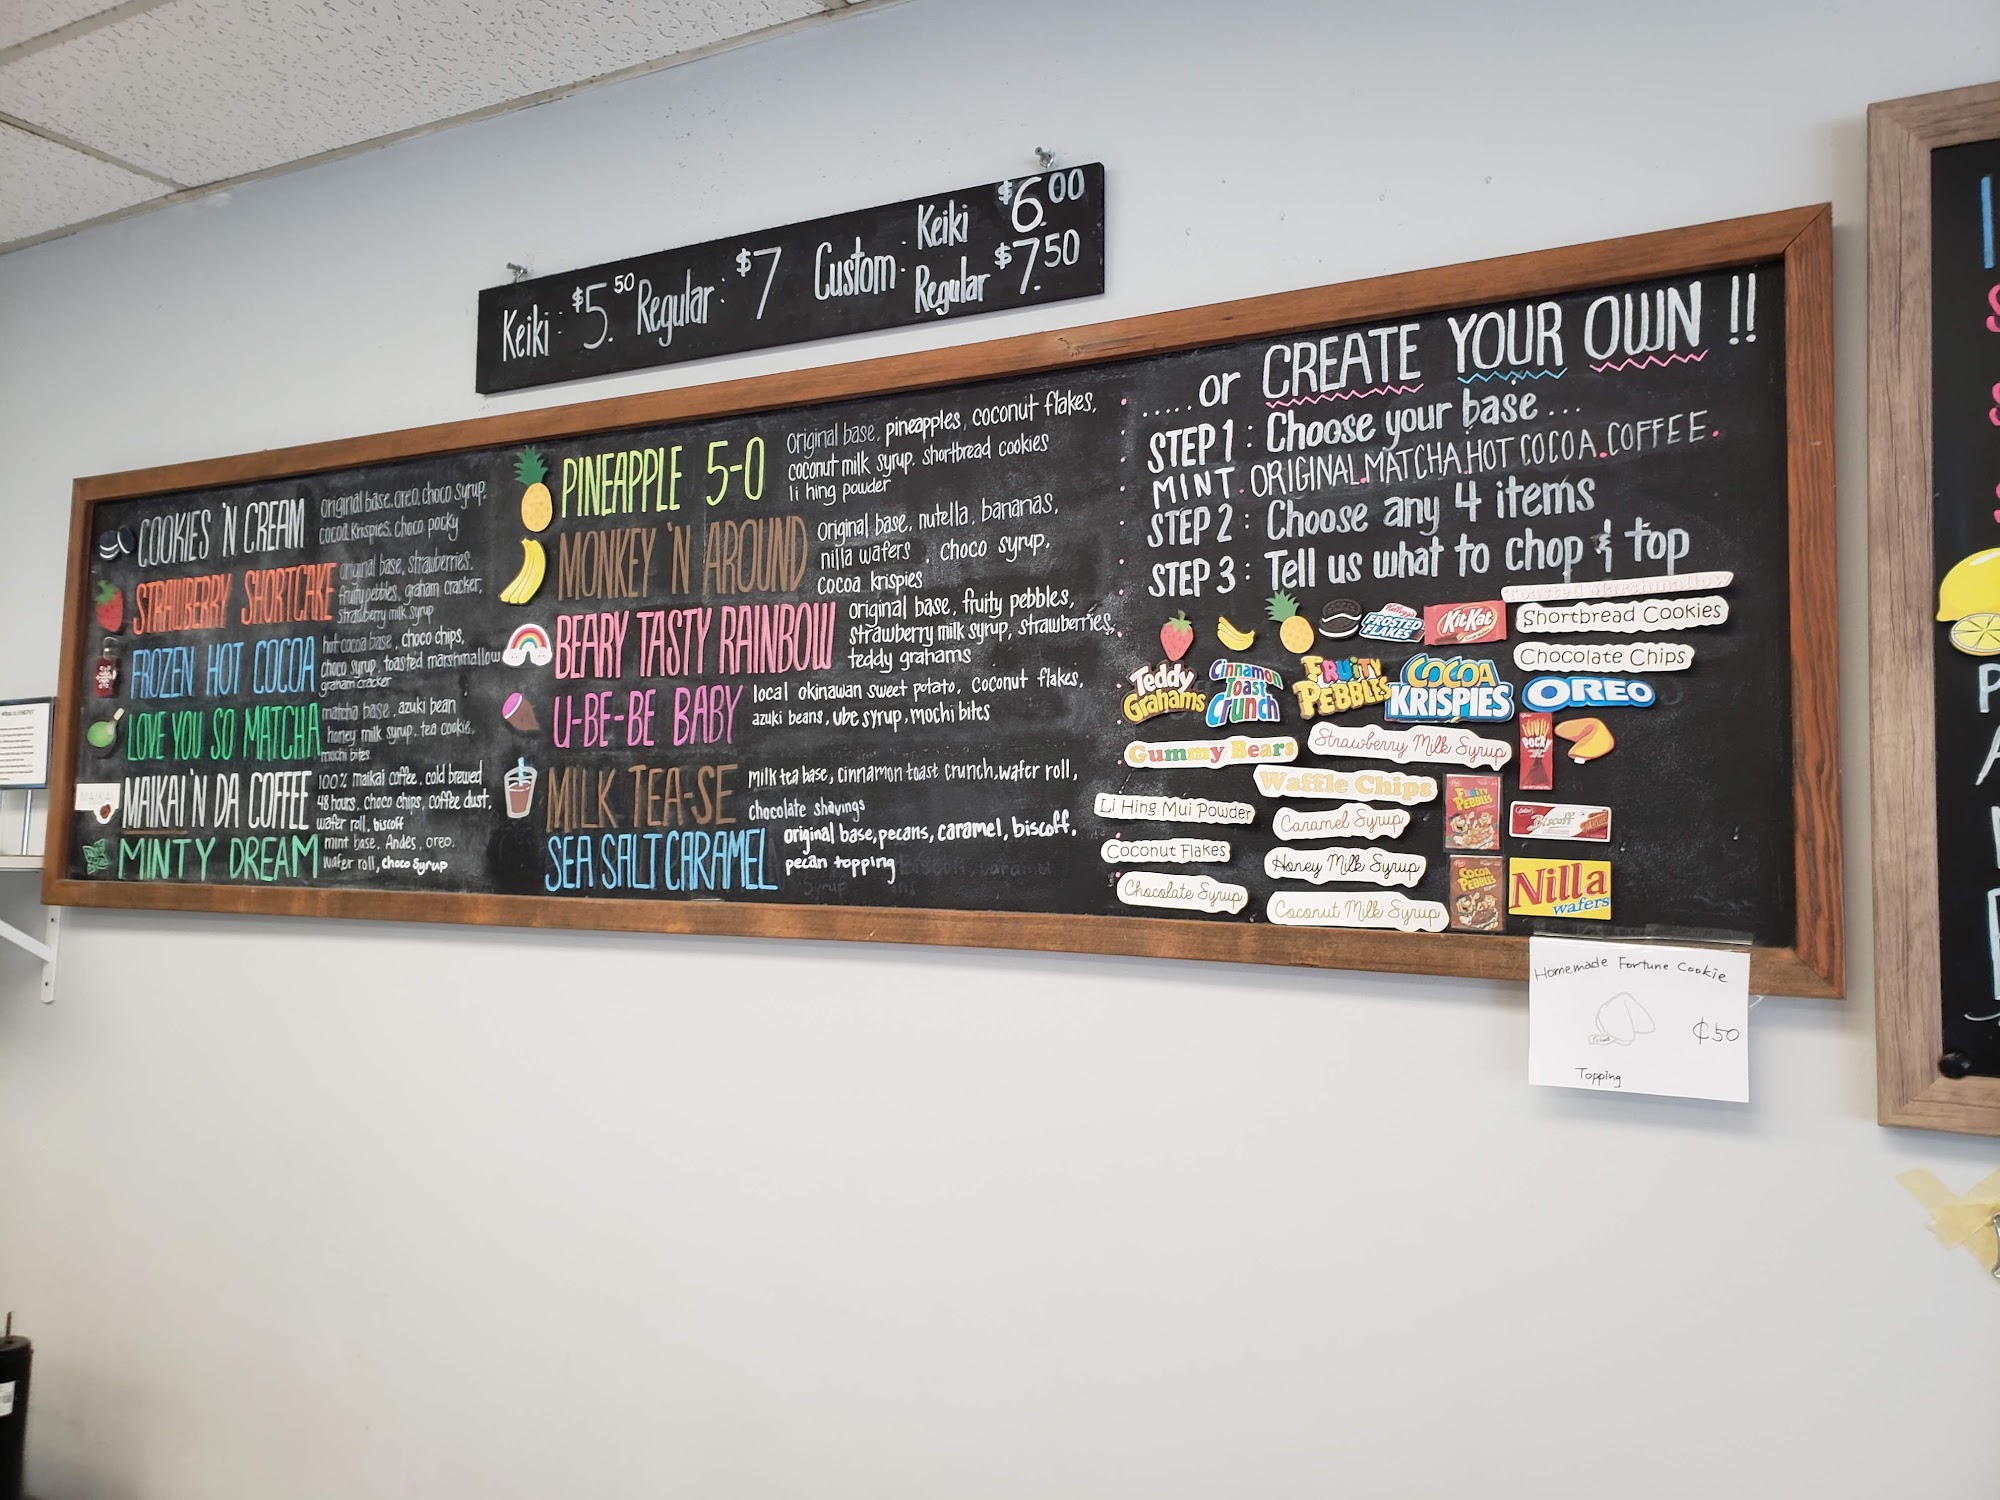 Keiki: $5.50 Regular: $7 Custom: Keiki $6.00
Regular $7.50
COOKIES 'N CREAM
original base, oreo, choco syrup,
cocoa krispies, choco pocky
STRAWBERRY SHORTCAKE
original base, strawberries,
fruity pebbles, graham cracker,
strawberry milk syrup
FROZEN HOT COCOA
hot cocoa base, choco chips,
choco syrup, toasted marshmallow
graham cracker
LOVE YOU SO MATCHA
matcha base, azuki bean
honey milk syrup, tea cookie,
mochi bites
MAIKAI 'N DA COFFEE
100% maikai coffee, cold brewed
48 hours, choco chips, coffee dust,
wafer roll, biscoff
MINTY DREAM
mint base, Andes, oreo,
wafer roll, choco syrup
PINEAPPLE 5-0
original base, pineapples, coconut flakes,
coconut milk syrup, shortbread cookies
li hing powder
MONKEY 'N AROUND
original base, nutella, bananas,
nilla wafers, choco syrup,
cocoa krispies
BEARY TASTY RAINBOW
original base, fruity pebbles,
strawberry milk syrup, strawberries,
teddy grahams
U-BE-BE BABY
local okinawan sweet potato, coconut flakes,
azuki beans, ube syrup, mochi bites
MILK TEA-SE
milk tea base, cinnamon toast crunch, wafer roll,
chocolate shavings
SEA SALT CARAMEL
original base, pecans, caramel, biscoff,
pecan topping
.....or CREATE YOUR OWN !!
STEP 1: Choose your base...
MINT. ORIGINAL. MATCHA. HOT COCOA. COFFEE.
STEP 2: Choose any 4 items
STEP 3: Tell us what to chop & top
Toasted Marshmallow
Kellogg's FROSTED FLAKES
KitKat
Shortbread Cookies
Teddy Grahams
Cinnamon Toast Crunch
FRUITY PEBBLES
COCOA KRISPIES
Chocolate Chips
OREO
Gummy Bears
Strawberry Milk Syrup
POCKY
Waffle Chips
Li Hing Mui Powder
Caramel Syrup
FRUITY PEBBLES
Biscoff
Coconut Flakes
Honey Milk Syrup
Chocolate Syrup
Coconut Milk Syrup
COCOA PEBBLES
Nilla wafers
Homemade Fortune Cookie
¢50
Topping